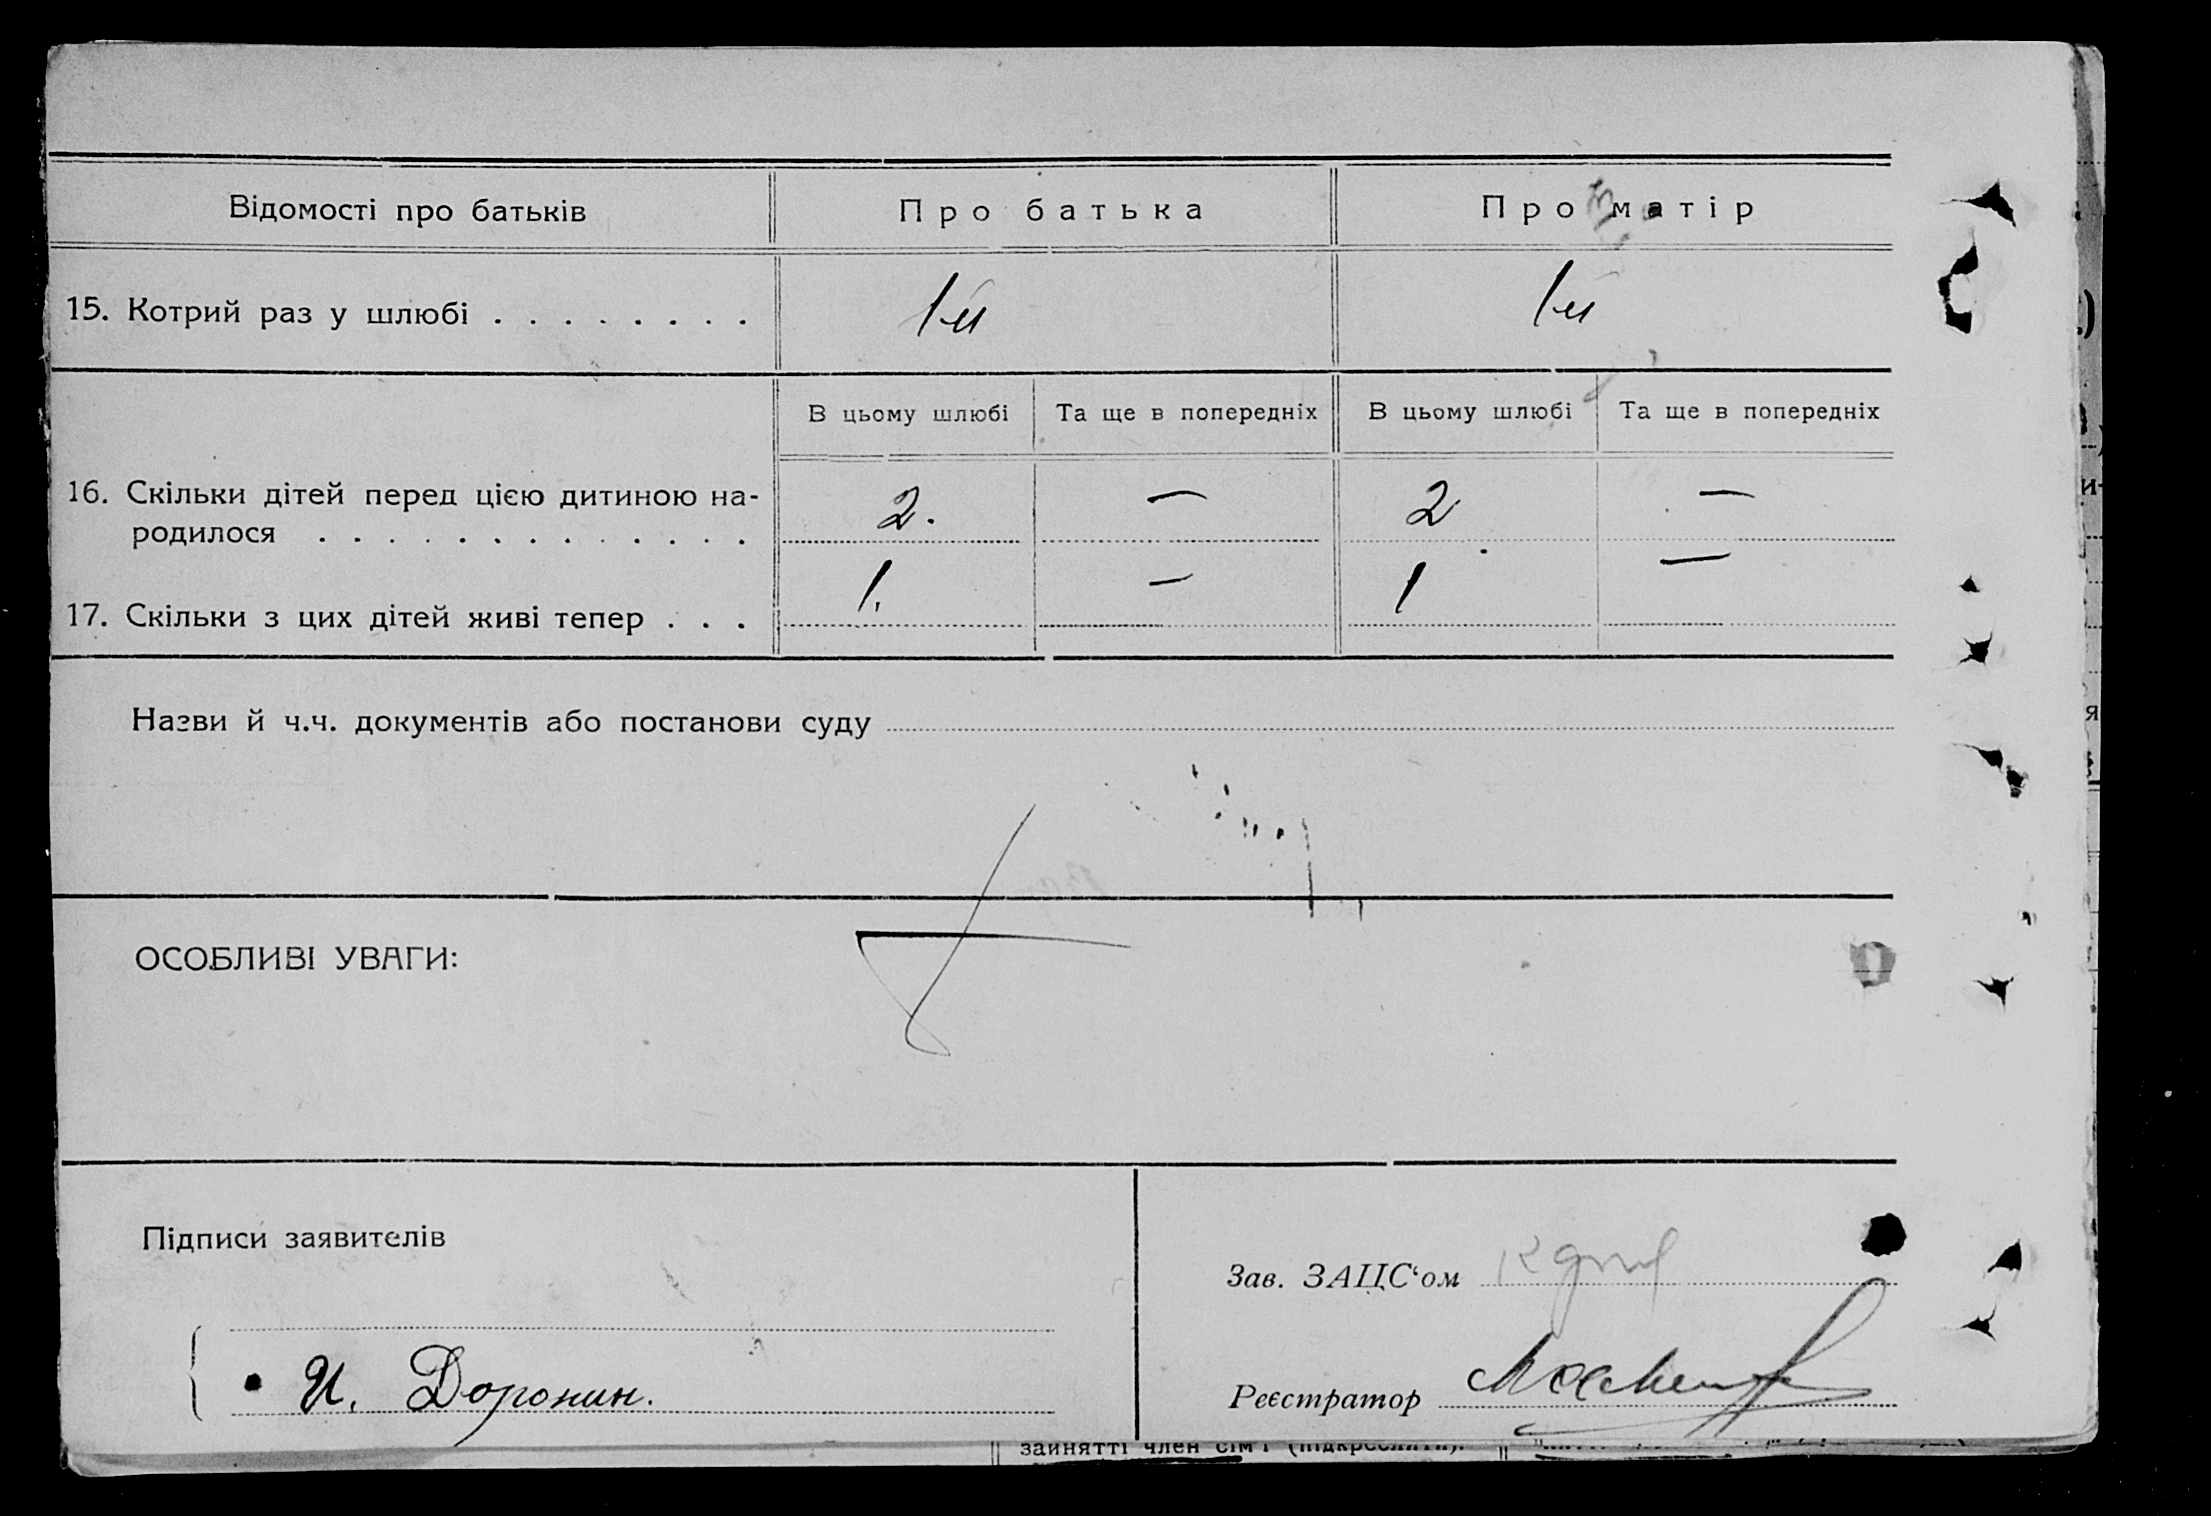 Відомості про батьків
Про батька
Про матір
15. Котрий раз у шлюбі . . . . . . . .
1й
1й
В цьому шлюбі
Та ще в попередніх
В цьому шлюбі
Та ще в попередніх
16. Скільки дітей перед цією дитиною на-
родилося . . . . . . . . . . . . .
2.
—
2
—
17. Скільки з цих дітей живі тепер . . .
1.
—
1
—
Назви й ч.ч. документів або постанови суду
ОСОБЛИВІ УВАГИ:
Підписи заявителів
Зав. ЗАЦС‘ом
И. Доронин.
Реєстратор